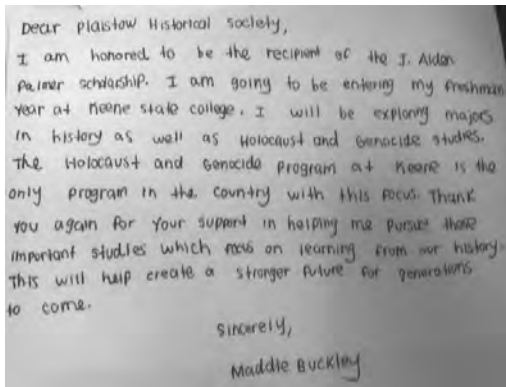 Dear Plaistow Historical Society,
I am honored to be the recipient of the J. Alden
Palmer scholarship. I am going to be entering my freshman
year at Keene state college. I will be exploring majors
in history as well as Holocaust and Genocide studies.
The Holocaust and Genocide program at Keene is the
only program in the country with this focus. Thank
you again for your support in helping me pursue these
important studies which focus on learning from our history.
This will help create a stronger future for generations
to come.
Sincerely,
Maddie Buckley